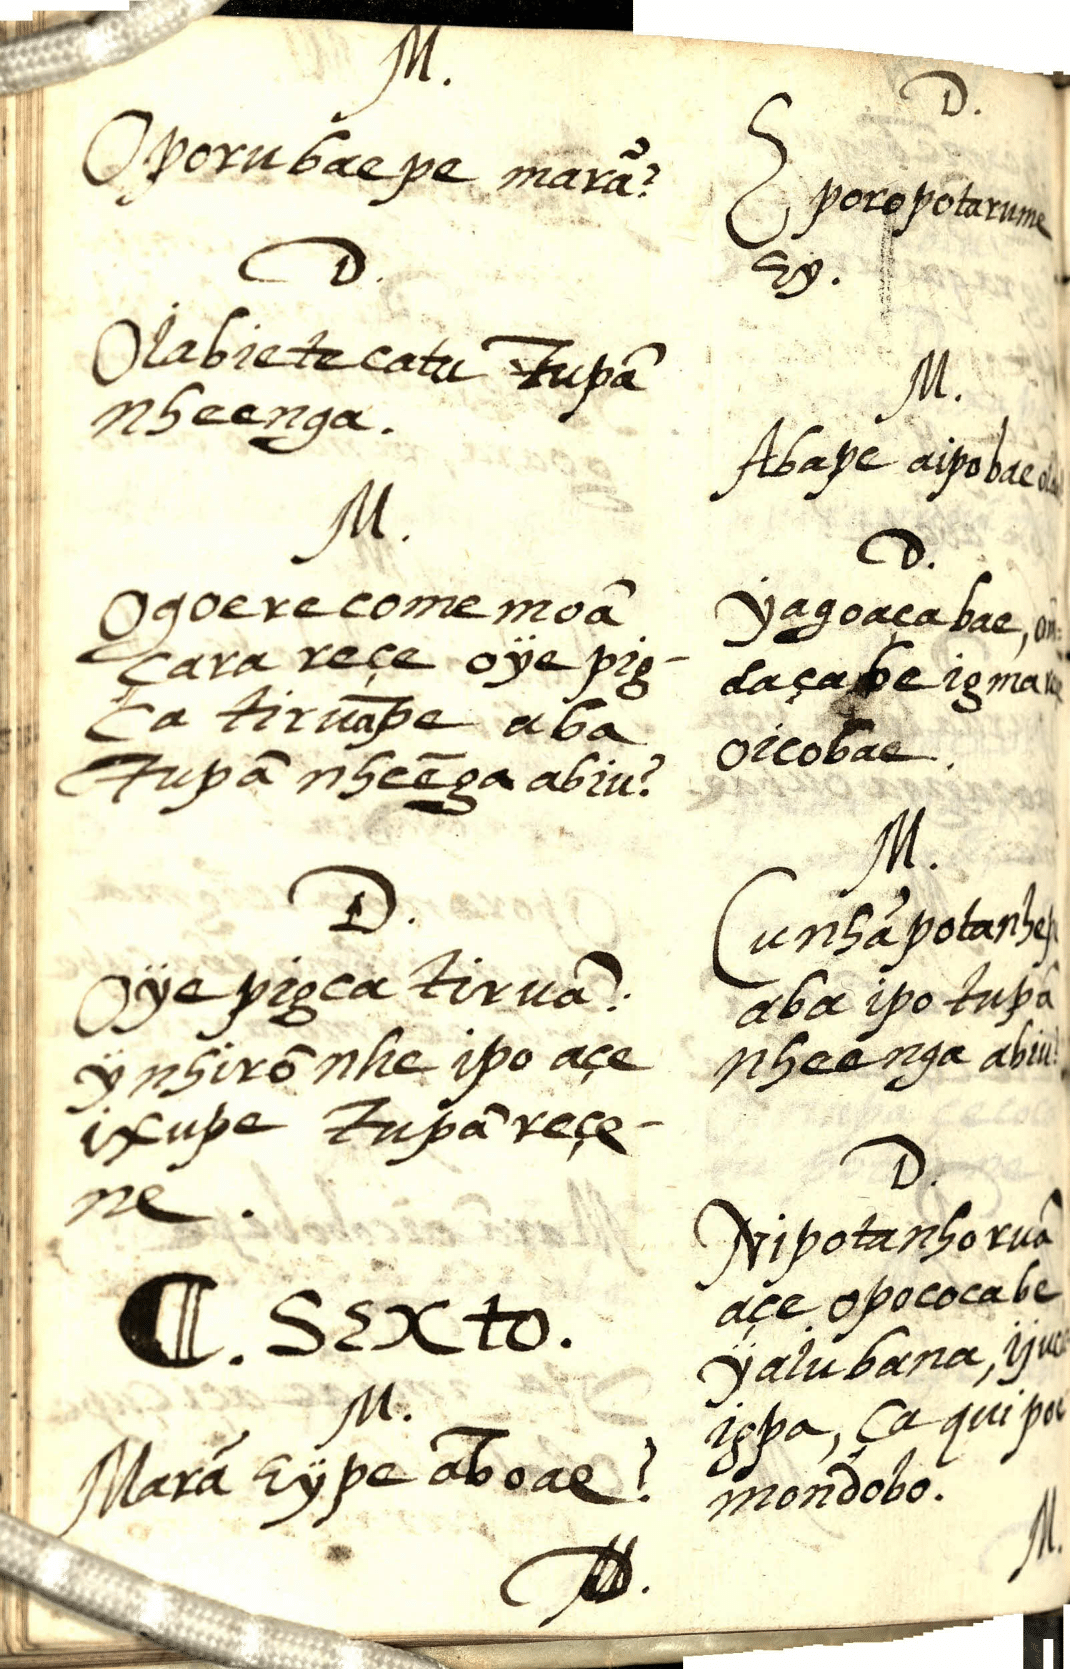 M.
Oporubae pe marã?
D.
Olabiete catu Tupã
nheenga.
M.
Ogoerecomemoã
çara reçe oÿe pig-
ca tiruãpe aba
Tupã nheẽga abiu?
D.
Oÿe pigca tiruã.
ÿnhirõ nhe ipo açe
ixupe Tupã reçe-
ne.
¶. Sexto.
M.
Marã Eÿpe amboae?
D.
D.
Eporopotarume
Ey.
M.
Abape aipobae
D.
Ÿagoaçabae,
daçabe igma
oicobae.
M.
Cunhã potanhe
aba ipo tupã
nheenga abiu?
D.
Nipotanhoruã
açe opococabe
ÿalubana,
igpa, Ça qui
mondobo.
M.